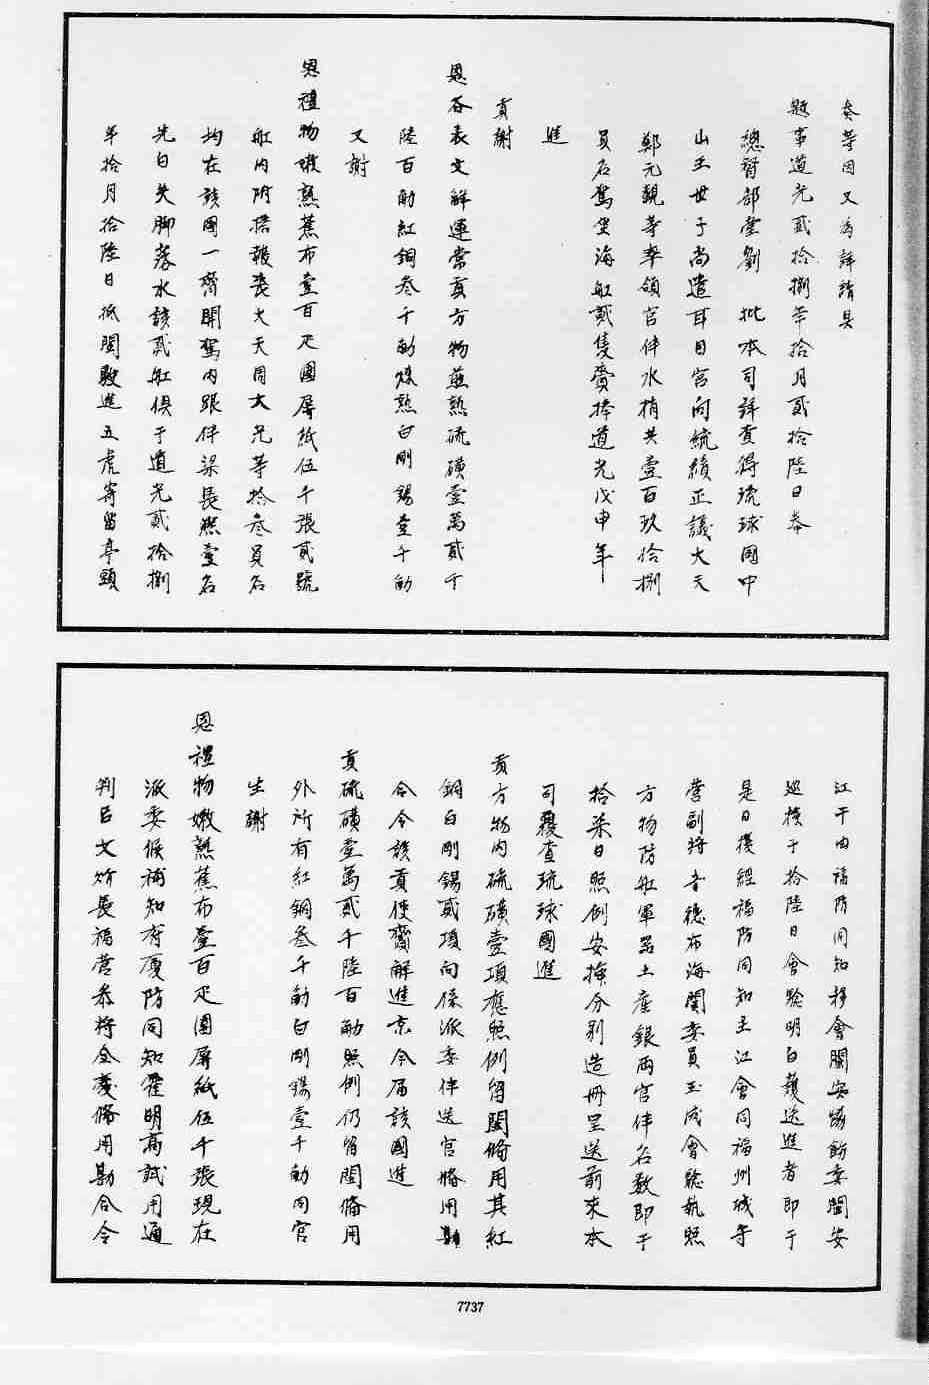 奏等因又為詳請具
題事道光貳拾捌年拾月貳拾陸日奉
總督部堂劉 批本司詳查得琉球國中
山王世子尚遣耳目官向統績正議大夫
鄭元覲等率領官伴水梢共壹百玖拾捌
員名駕坐海船貳隻賫捧道光戊申年
進
貢謝
恩咨表文解運常貢方物煎熟硫磺壹萬貳千
陸百觔紅銅叁千觔煉熟白剛錫壹千觔
又謝
恩禮物嫩熟蕉布壹百疋圍屏紙伍千張貳號
船內附搭報喪大夫周大兄等拾叁員名
均在該國一齊開駕內跟伴梁長燃壹名
先自失脚落水該貳船俱于道光貳拾捌
年拾月拾陸日抵閩駛進五虎寄留亭頭
江干由福防同知移會閩安協飭委閩安
巡檢于拾陸日會驗明白護送進者即于
是日復經福防同知王江會同福州城守
營副將音德布海關委員玉成會驗執照
方物防船軍器土產銀兩官伴名數即于
拾柒日照例安揷分別造冊呈送前來本
司覆查琉球國進
貢方物內硫磺壹項應照例留閩備用其紅
銅白剛錫貳項向係派委伴送官備用勘
合令該貢使齎解進京今屆該國進
貢硫磺壹萬貳千陸百觔照例仍留閩備用
外所有紅銅叁千觔白剛錫壹千觔同官
生謝
恩禮物嫩熟蕉布壹百疋圍屏紙伍千張現在
派委候補知府厦防同知霍明高試用通
判呂文炘長福營叅將全慶備用勘合令
7737